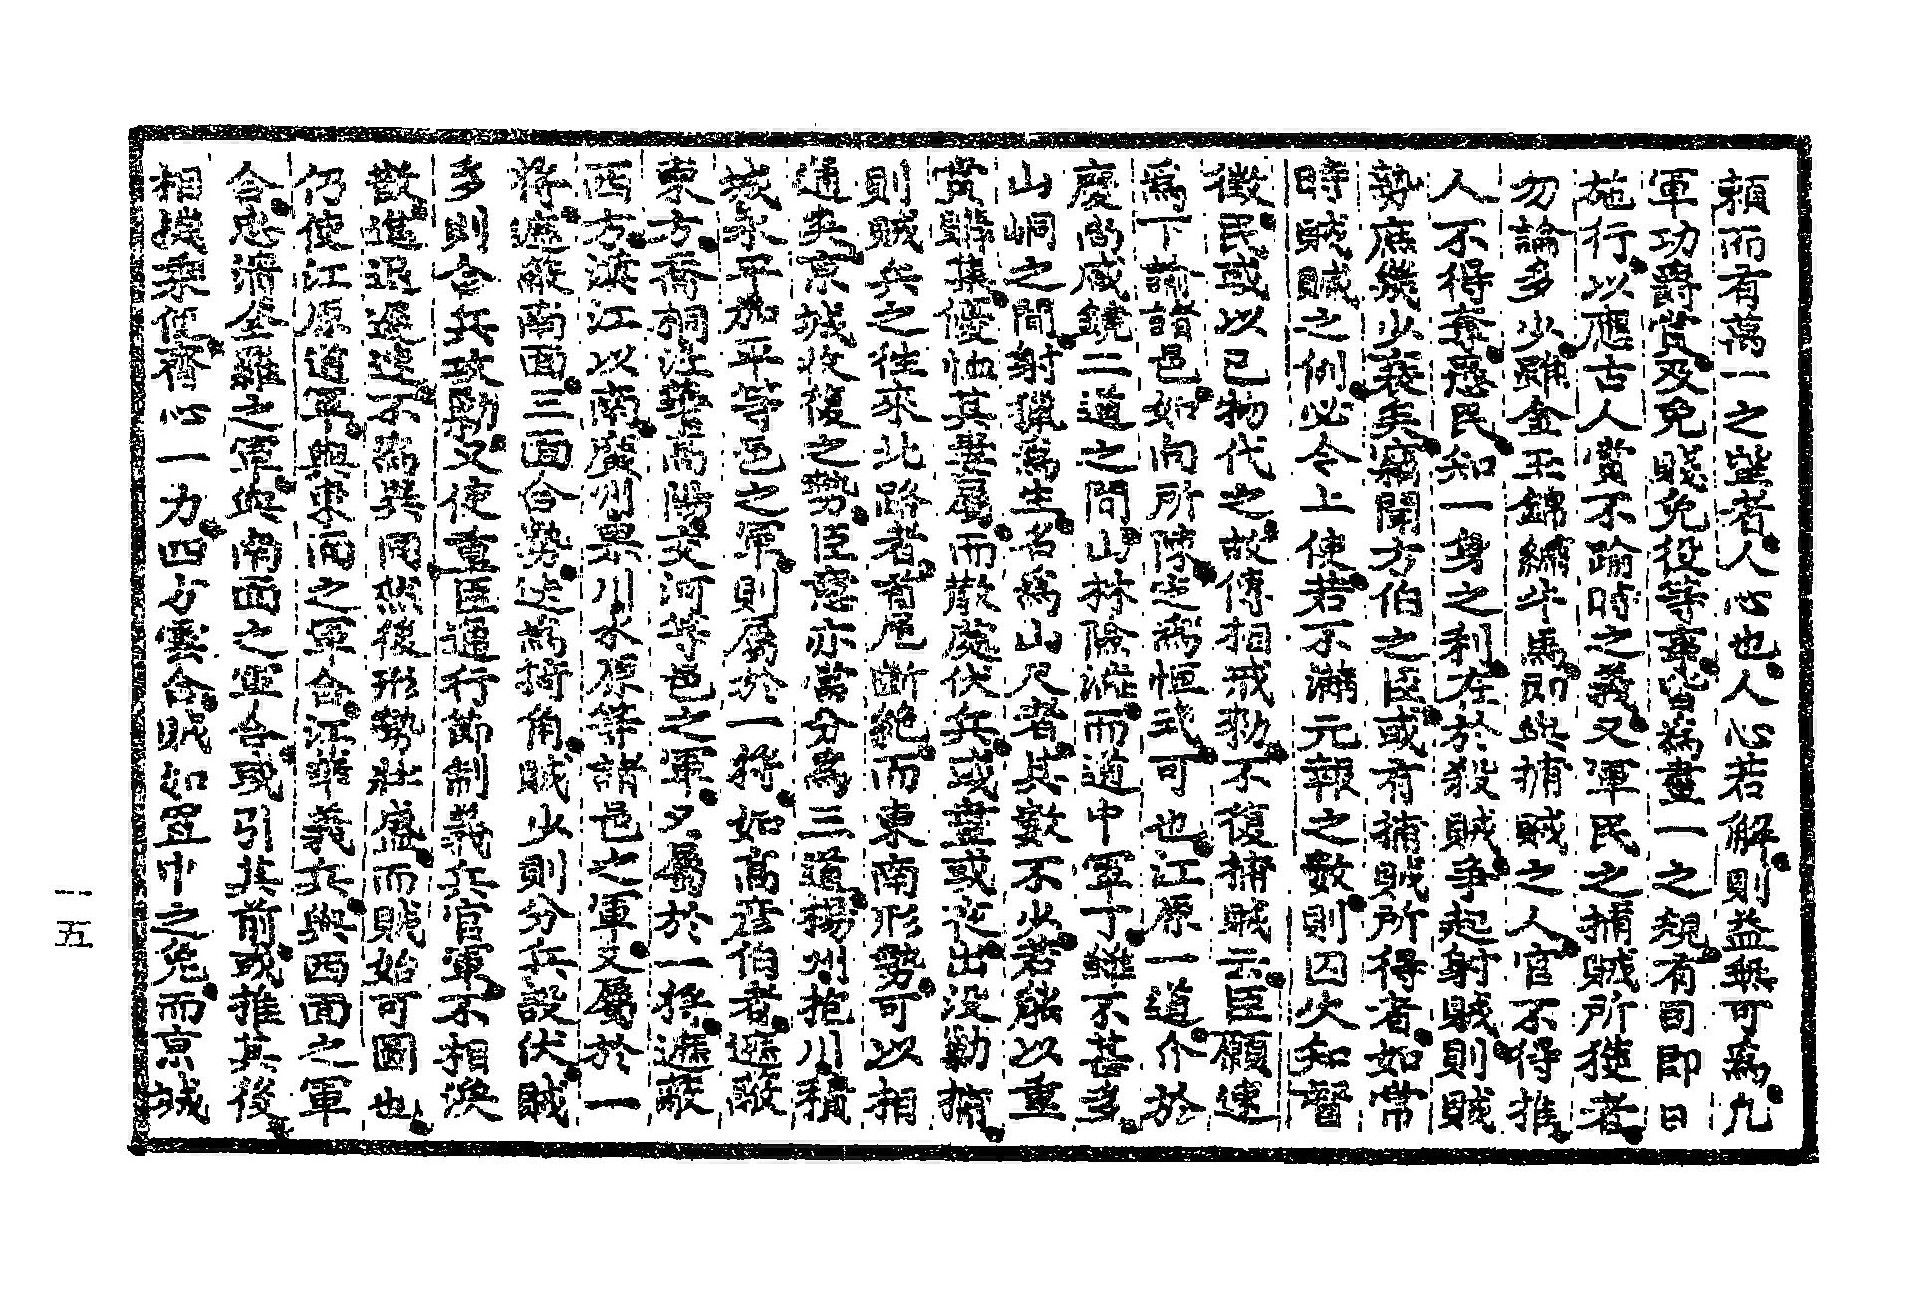 賴而有萬一之望者人心也人心若解則益無可爲凡
軍功爵賞及免賤免役等事皆爲畫一之規有司卽日
施行以應古人賞不踰時之義又軍民之捕賊所獲者
勿論多少雖金玉錦繡牛馬卽與捕賊之人官不得推
人不得奪愚民知一身之利在於殺賊爭起射賊則賊
勢庶幾少衰矣竊聞方伯之臣或有捕賊所得者如常
時賊贓之例必令上使若不滿元報之數則囚次知督
徵民或以己物代之故傳相戒勅不復捕賊云臣願速
爲下諭諸邑如向所陳定爲恒式可也江原一道介於
慶尙咸鏡二道之間山林險澁而道中軍丁雖不甚多
山峒之間射獵爲生名爲山尺者其數不少若能以重
賞購募優恤其妻屬而散處伏兵或晝或夜出沒勦捕
則賊兵之往來北路者首尾斷絶而東南形勢可以相
通矣京城收復之勢臣意亦當分爲三道楊州抱川積
城永平加平等邑之軍則屬於一將如高彦伯者遮蔽
東方喬桐江華高陽交河等邑之軍又屬於一將遮蔽
西方漢江以南廣州果川水原等諸邑之軍又屬於一
將遮蔽南面三面合勢迭爲掎角賊少則分兵設伏賊
多則合兵攻勦又使重臣通行節制義兵官軍不相渙
散進退遲速不爲異同然後形勢壯盛而賊始可圖也
仍使江原道軍與東面之軍合江華義兵與西面之軍
合忠淸全羅之軍與南面之軍合或引其前或推其後
相機乘便齊心一力四方雲合賊如罝中之兔而京城
一五